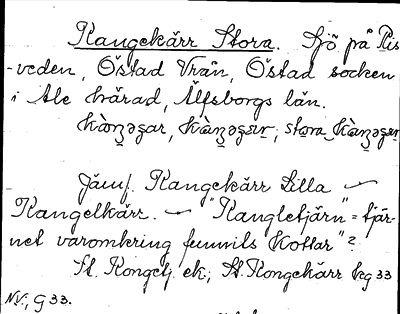 Kangekärr Stora. Sjö på Ris-
veden, Östad Vrån, Östad socken
i Ale härad, Älfsborgs län.
Jämf. Kangekärr Lilla
Kangelkärr. "Kangletjärn" = tjär-
net varomkring funnits Kottar"?
St. Kongetj. ek.; St. Kongekärr kg 33
NV., G 33.